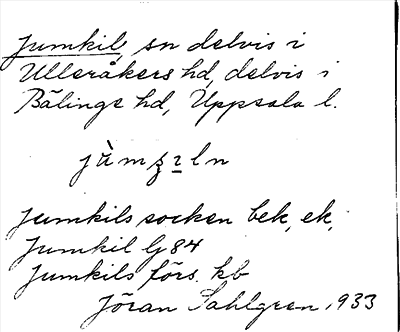 Jumkil, sn delvis i
Ulleråkers hd, delvis i
Bälinge hd, Uppsala l.
Jumkils socken bek, ek,
Jumkil lj 84
Jumkils förs. kb
Jöran Sahlgren 1933